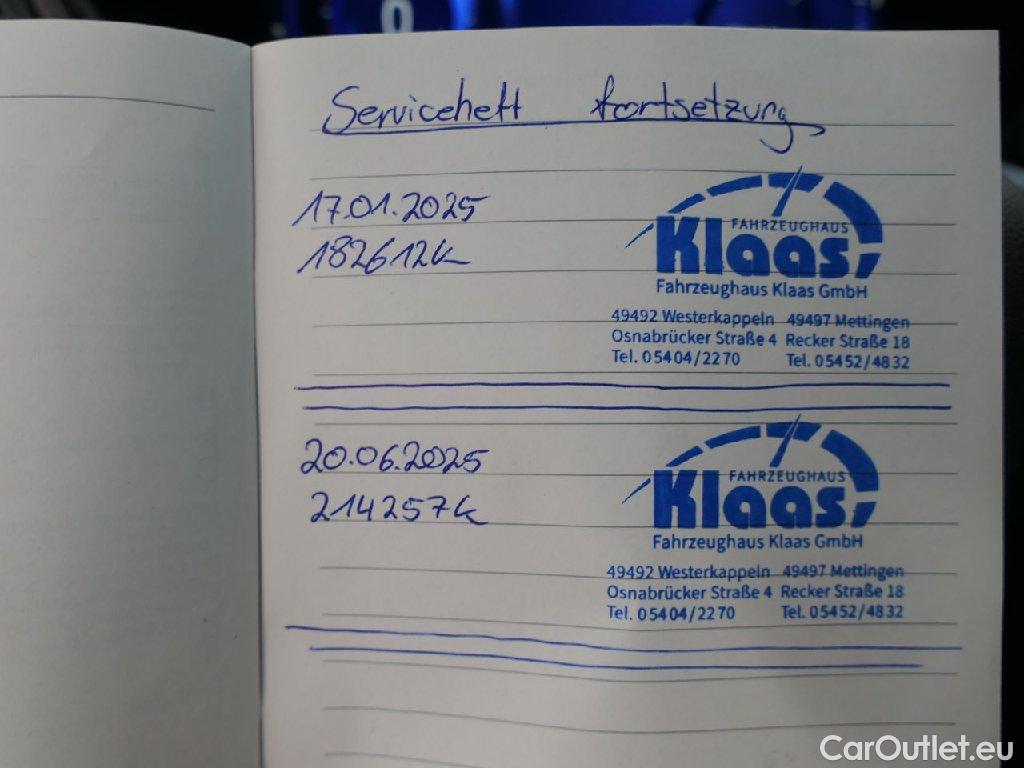 0
Serviceheft fortsetzung
17.01.2025
182612k
FAHRZEUGHAUS
Klaas
Fahrzeughaus Klaas GmbH
49492 Westerkappeln 49497 Mettingen
Osnabrücker Straße 4 Recker Straße 18
Tel. 05404/2270 Tel. 05452/4832
20.06.2025
214257k
FAHRZEUGHAUS
Klaas
Fahrzeughaus Klaas GmbH
49492 Westerkappeln 49497 Mettingen
Osnabrücker Straße 4 Recker Straße 18
Tel. 05404/2270 Tel. 05452/4832
CarOutlet.eu